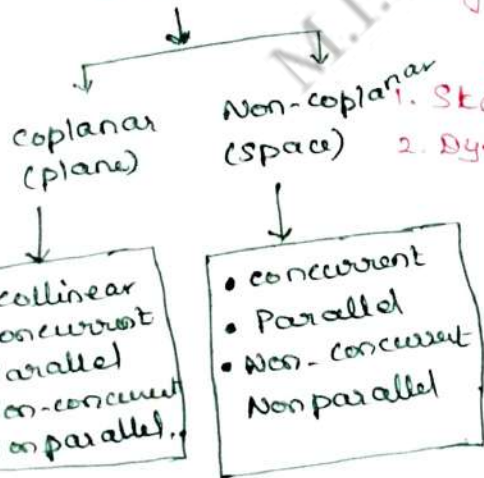 M.I.
coplanar
(plane)
Non-coplanar
(space)
1. St
2. Dy
collinear
oncurrent
arallel
on-concurrent
onparallel.
• concurrent
• Parallel
• Non-concurrent
Nonparallel